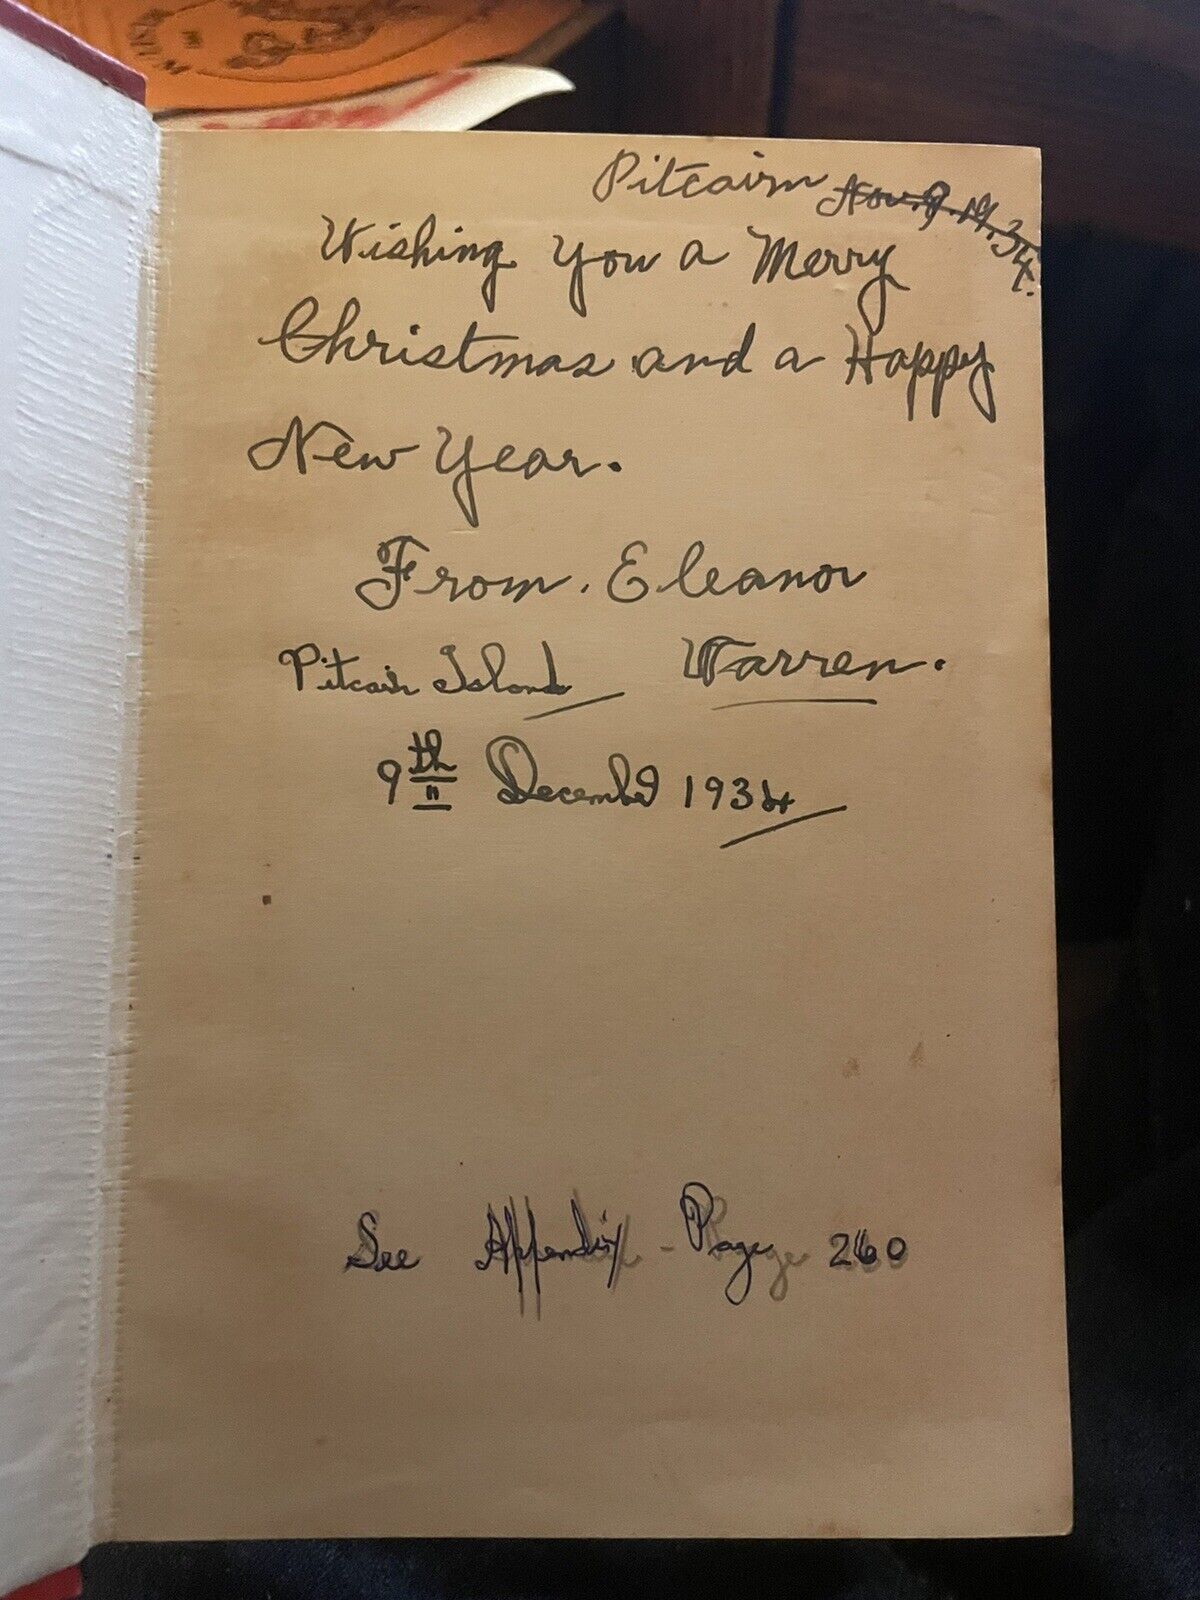 Pitcairn Nov. 9. 19.34.
Wishing You a Merry
Christmas and a Happy
New Year.
From. Eleanor
Pitcair Island Warren.
9th December 1934
See Appendix - Page 260